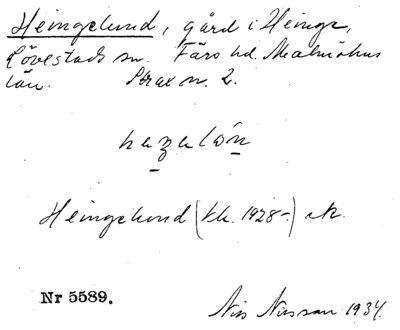 Heingelund, gård i Heinge,
Lövestads sn. Färs hd. Malmöhus
län. Strax n. 2.
Heingelund (kh. 1928-)
Nr 5589.
Nils Nilsson 1934.